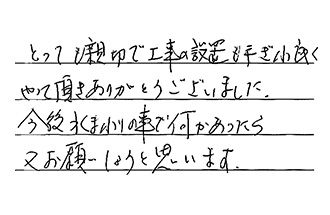 とっても親切で工事の設置も手ぎわ良く
やって頂きありがとうございました.
今後水まわりの事で何かあったら
又お願いしようと思います.